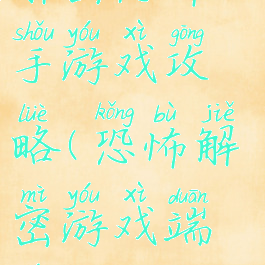 shǒu yóu xì gōng
手游戏攻
lüè kǒng bù jiě
略(恐怖解
mì yóu xì duān
密游戏端